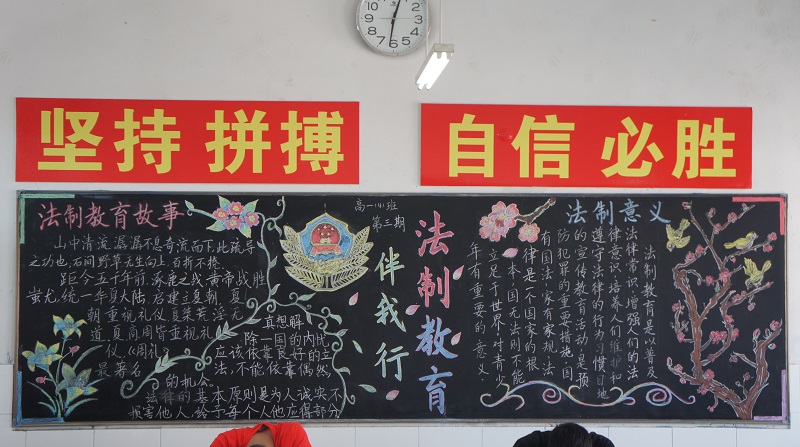 坚持 拼搏
自信 必胜
法制教育故事
山中清流潺潺不息奔流而下,此疏导
之功也,石间野草花生向上,百折不挠。
距今五千年前,涿鹿之战,黄帝战胜
蚩尤,统一华夏大陆,启建立夏朝,夏
朝重视礼仪,夏桀荒淫无
道,夏商周皆重视礼
仪,《周礼》
最著名
高一(4)班
第三期
法制教育
伴我行
真想解
除一国的内忧
应该依靠良好的立
法,不能依靠偶然
的机会。
法律的基本原则是为人诚实,不
损害他人,给予每个人他应得部分
法制意义
法制教育是以普及
法律常识,增强人们的法
律意识,培养人们维护和
遵守法律的行为习惯目地
的宣传教育活动,是预
防犯罪的重要措施,国
有国法,家有家规,法
律是一个国家的根
本,国无法则不能
立足于世界,对青少
年有重要的意义.